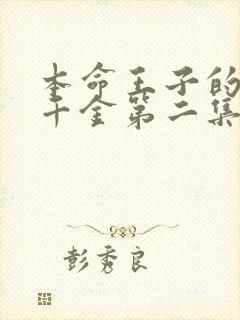 本命王子的
千金第二集
彭秀良